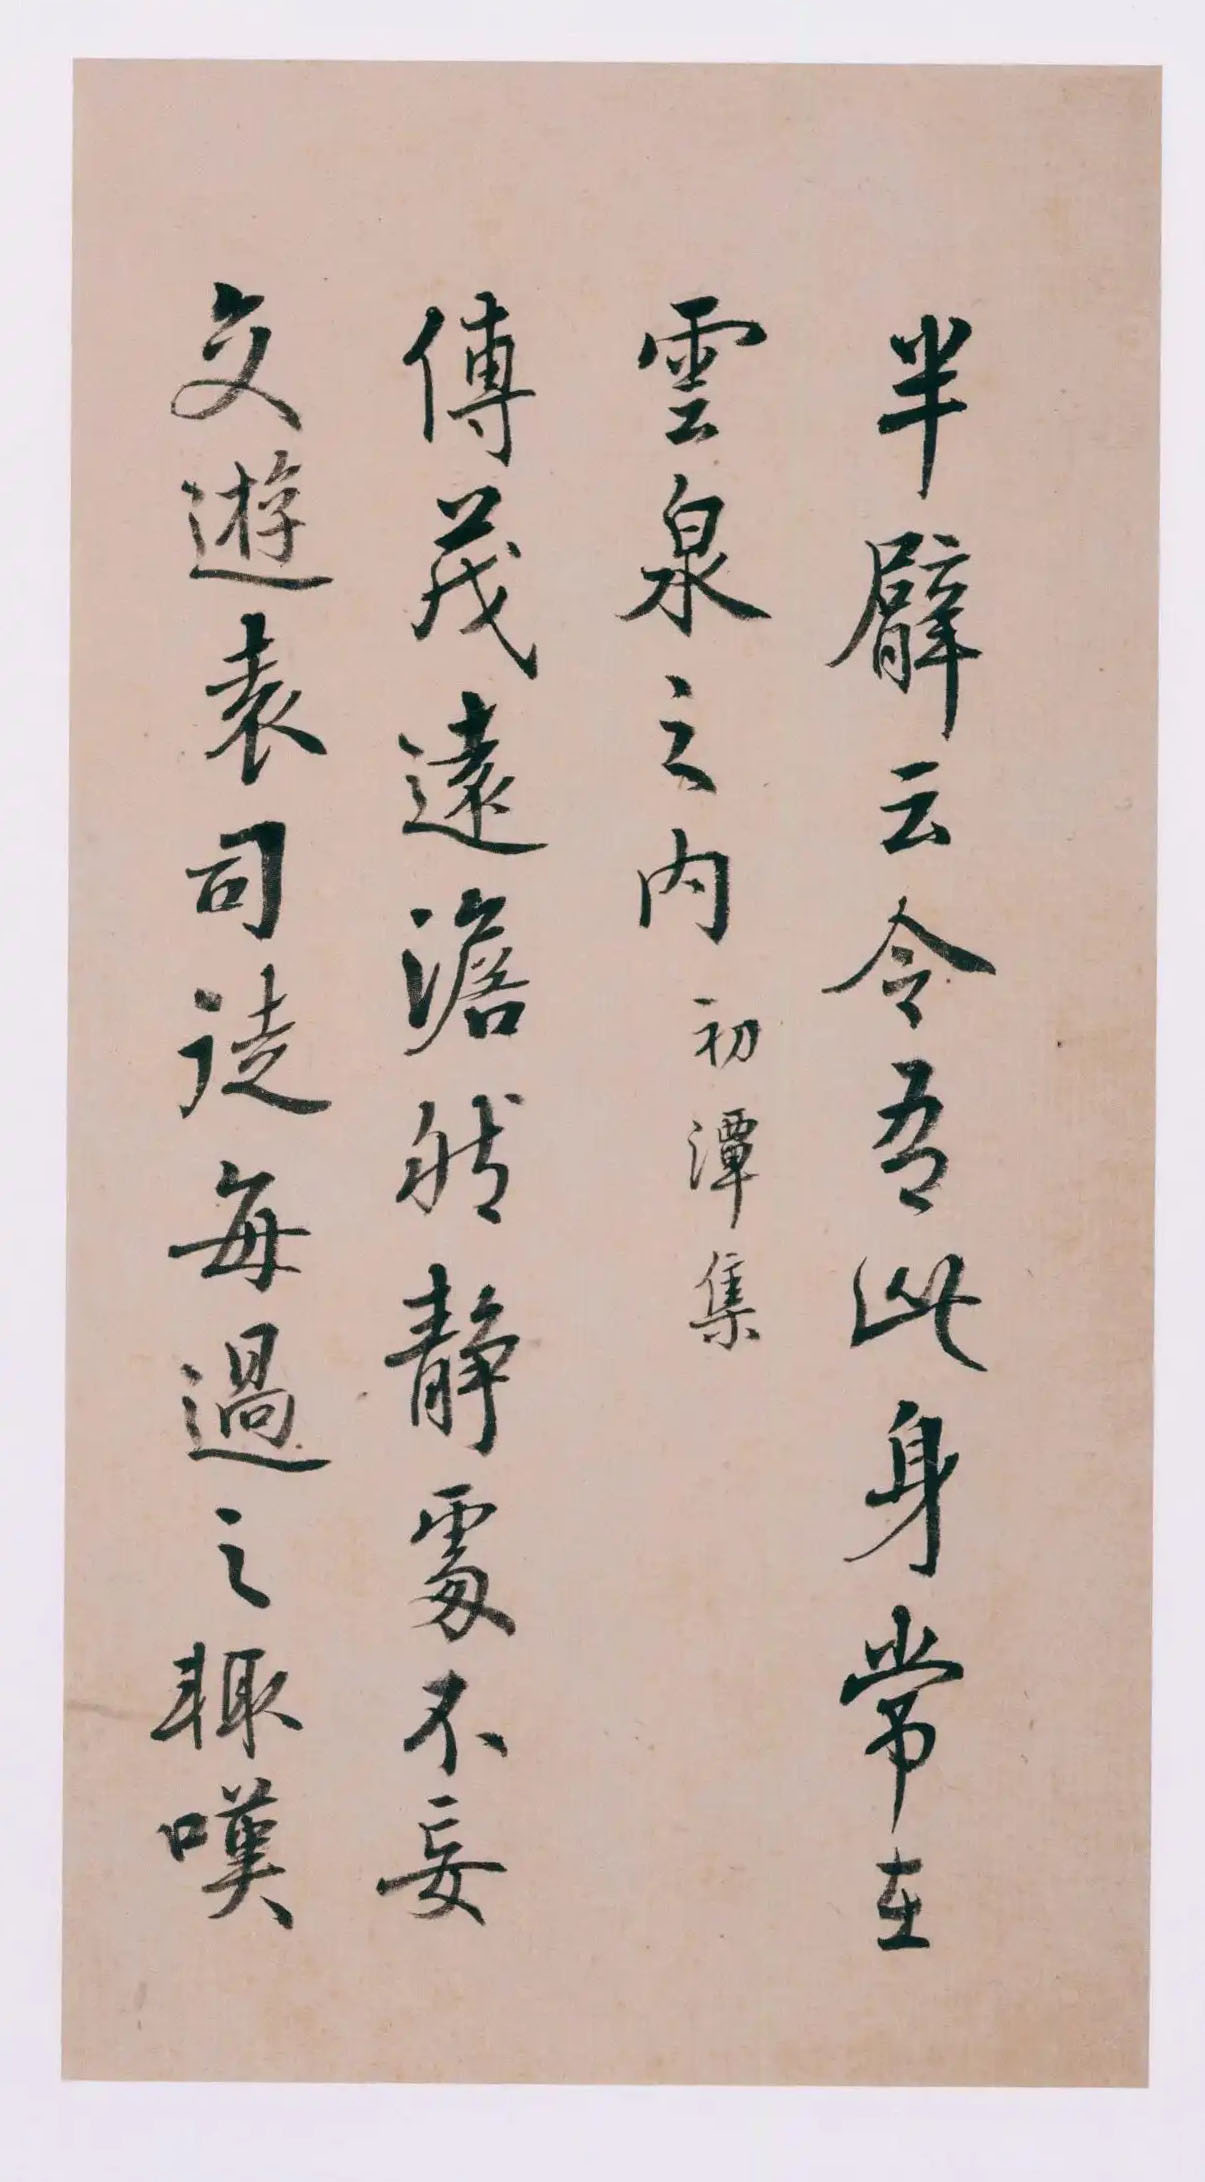 半臂云令吾此身常在
雲泉之内 初潭集
傅茂遠澹然静處不妄
交遊袁司徒每過之輒嘆